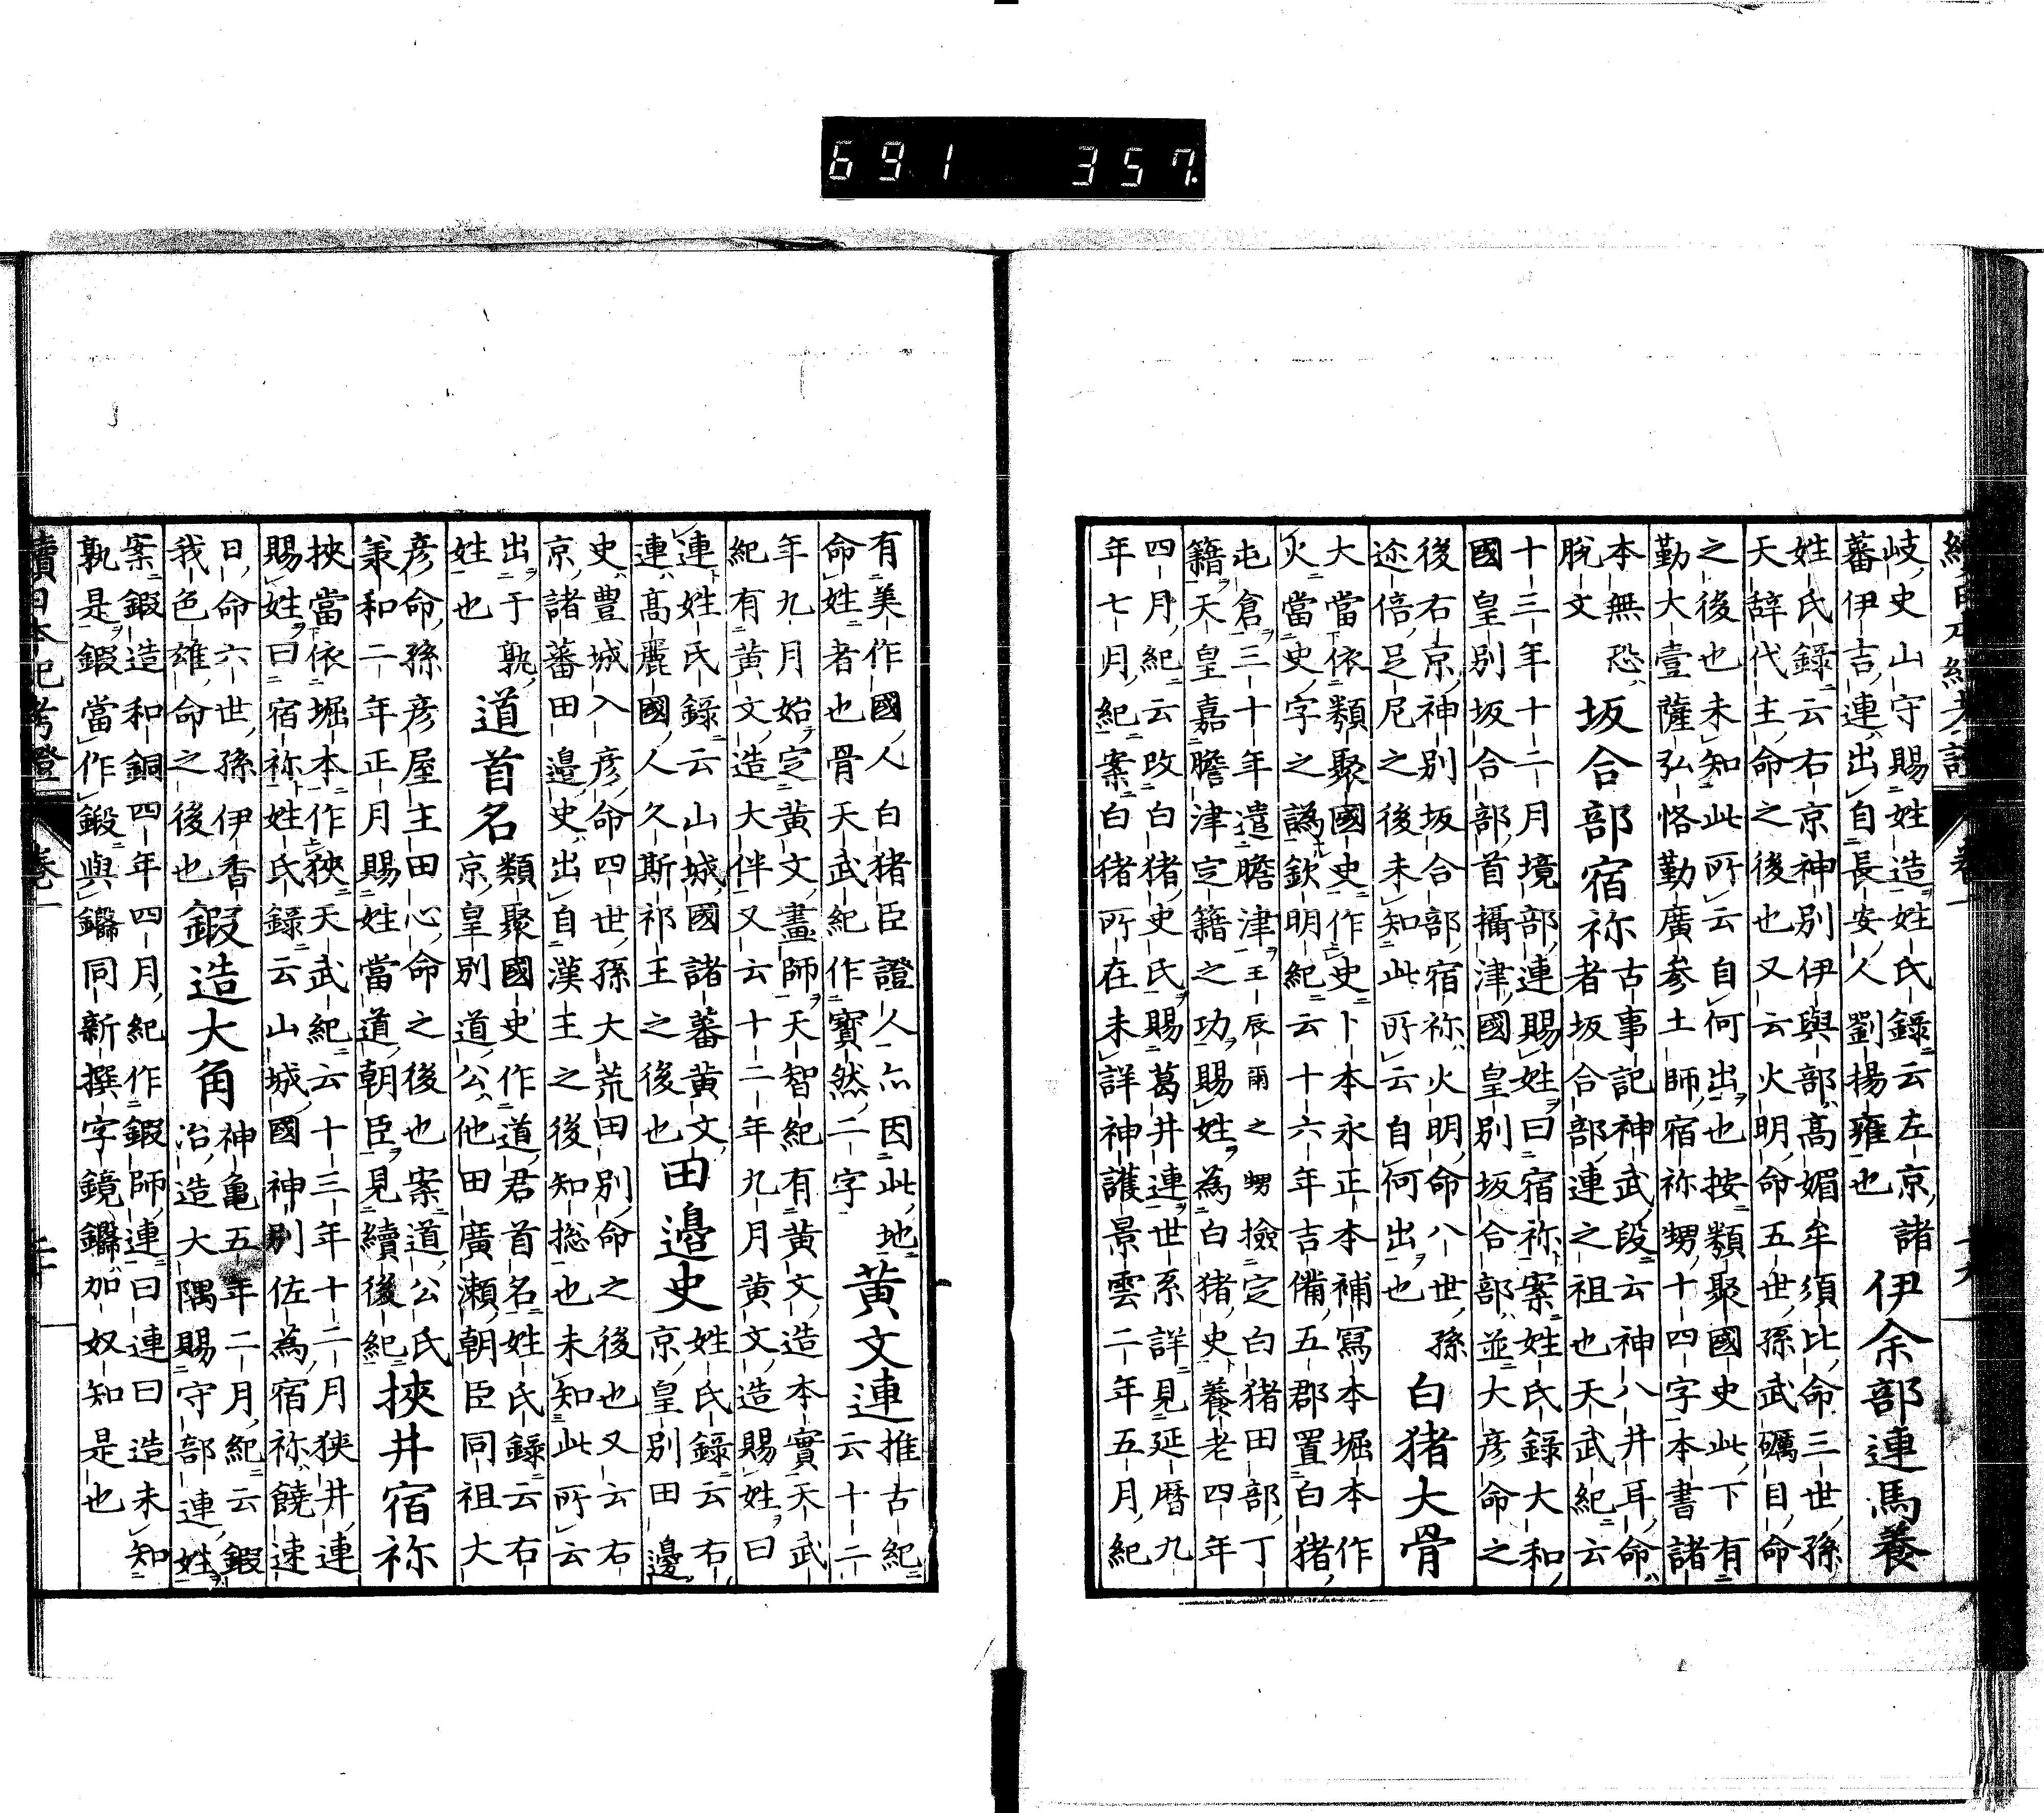 691 357
續日本紀考證 卷一 十九
岐史山守賜姓造姓氏錄云左京諸
蕃伊吉連出自長安人劉揚雍也
伊余部連馬養
姓氏錄云右京神別伊與部髙媚牟須比命三世孫
天辞代主命之後也又云火明命五世孫武礪目命
之後也未知此所云自何出也按類聚國史此下有
勤大壹薩弘恪勤廣参土師宿祢甥十四字本書諸
本無恐
脫文
坂合部宿祢
古事記神武段云神八井耳命
者坂合部連之祖也天武紀云
十三年十二月境部連賜姓曰宿祢案姓氏錄大和
國皇別坂合部首攝津國皇別坂合部並大彦命之
後右京神別坂合部宿祢火明命八世孫
迩倍足尼之後未知此所云自何出也
白猪大骨
大當依類聚國史作史卜本永正本補寫本堀本作
火當史字之譌欽明紀云十六年吉備五郡置白猪
屯倉三十年遣膽津王辰爾之甥撿定白猪田部丁
籍天皇嘉膽津定籍之功賜姓為白猪史養老四年
四月紀云改白猪史氏賜葛井連世系詳見延暦九
年七月紀案白猪所在未詳神護景雲二年五月紀
有美作國人白猪臣證人亦因此地
命姓者也骨天武紀作寶然二字
黄文連
推古紀
云十二
年九月始定黄文畫師天智紀有黄文造本實天武
紀有黄文造大伴又云十二年九月黄文造賜姓曰
連姓氏錄云山城國諸蕃黄文
連髙麗國人久斯祁王之後也
田邉史
姓氏錄云右
京皇別田邊
史豊城入彦命四世孫大荒田別命之後也又云右
京諸蕃田邉史出自漢王之後知惣也未知此所云
出于孰
姓也
道首名
類聚國史作道君首名姓氏錄云右
京皇別道公他田廣瀬朝臣同祖大
彦命孫彦屋主田心命之後也案道公氏
羕和二年正月賜姓當道朝臣見續後紀
挾井宿祢
挾當依堀本作狹天武紀云十三年十二月狹井連
賜姓曰宿祢姓氏錄云山城國神別佐為宿祢饒速
日命六世孫伊香
我色雄命之後也
鍜造大角
神亀五年二月紀云鍜
冶造大隅賜守部連姓
案鍜造和銅四年四月紀作鍜師連曰連曰造未知
孰是鍜當作鍛與鑐同新撰字鏡鑐加奴知是也
續日本紀考證 卷一 二十